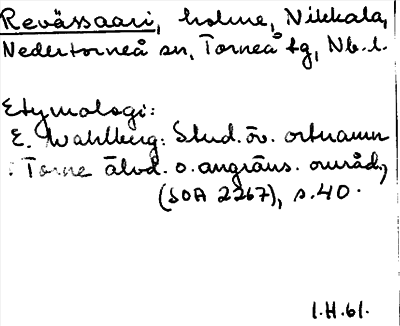 Revässaari, holme, Nikkala,
Nedertorneå sn, Torneå tg, Nb. l.
Etymologi:
E. Wahlberg: Stud. öv. ortnamn
i Torne älvd. o. angräns. områd.,
(SOA 2267), s. 40.
1.H.61.